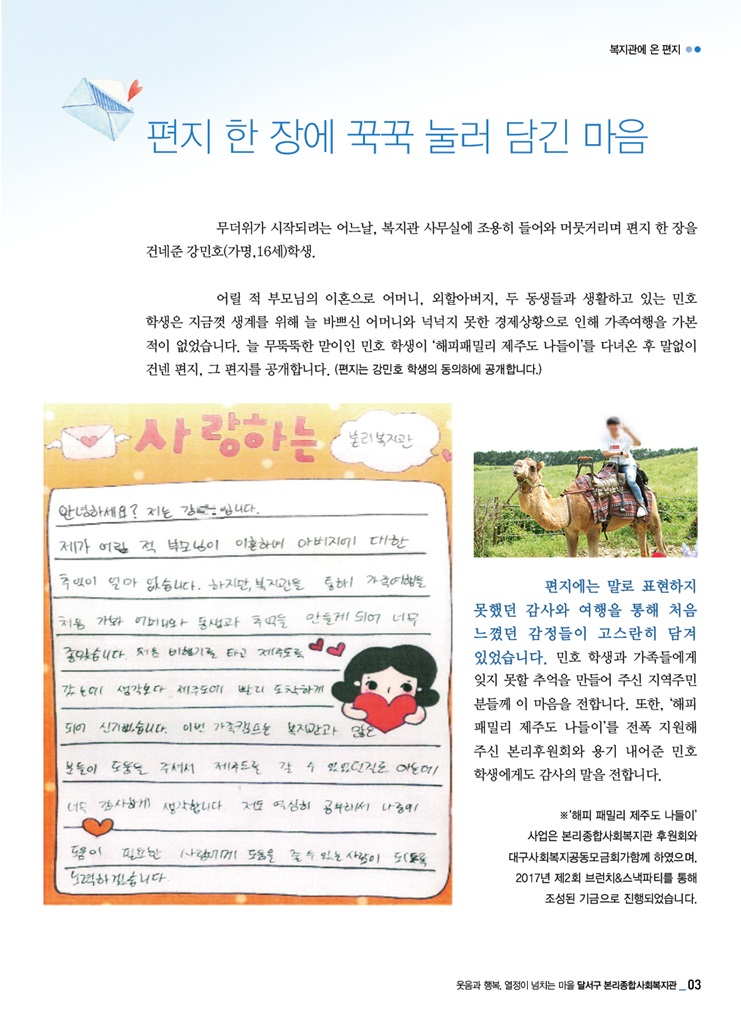 복지관에 온 편지
편지 한 장에 꾹꾹 눌러 담긴 마음
무더위가 시작되려는 어느날, 복지관 사무실에 조용히 들어와 머뭇거리며 편지 한 장을
건네준 강민호(가명,16세)학생.
어릴 적 부모님의 이혼으로 어머니, 외할아버지, 두 동생들과 생활하고 있는 민호
학생은 지금껏 생계를 위해 늘 바쁘신 어머니와 넉넉지 못한 경제상황으로 인해 가족여행을 가본
적이 없었습니다. 늘 무뚝뚝한 맏이인 민호 학생이 ‘해피패밀리 제주도 나들이’를 다녀온 후 말없이
건넨 편지, 그 편지를 공개합니다. (편지는 강민호 학생의 동의하에 공개합니다.)
사랑하는
본리복지관
안녕하세요? 저는 강 입니다.
제가 어릴 적 부모님이 이혼하여 아버지에 대한
추억이 얼마 없습니다. 하지만, 복지관을 통해 가족여행을
처음 가봐 어머니와 동생과 추억을 만들게 되어 너무
좋았습니다. 처음 비행기를 타고 제주도로
갔는데 생각보다 제주도에 빨리 도착하게
되어 신기했습니다. 이번 가족캠프는 복지관과 많은
분들이 도움을 주셔서 제주도를 갈 수 있었던걸로 아는데
너무 감사하게 생각합니다. 저도 열심히 공부해서 나중에
도움이 필요한 사람에게 도움을 줄 수 있는 사람이 되도록
노력하겠습니다.
편지에는 말로 표현하지
못했던 감사와 여행을 통해 처음
느꼈던 감정들이 고스란히 담겨
있었습니다. 민호 학생과 가족들에게
잊지 못할 추억을 만들어 주신 지역주민
분들께 이 마음을 전합니다. 또한, ‘해피
패밀리 제주도 나들이’를 전폭 지원해
주신 본리후원회와 용기 내어준 민호
학생에게도 감사의 말을 전합니다.
※‘해피 패밀리 제주도 나들이’
사업은 본리종합사회복지관 후원회와
대구사회복지공동모금회가함께 하였으며,
2017년 제2회 브런치&스낵파티를 통해
조성된 기금으로 진행되었습니다.
웃음과 행복, 열정이 넘치는 마을 달서구 본리종합사회복지관 _ 03